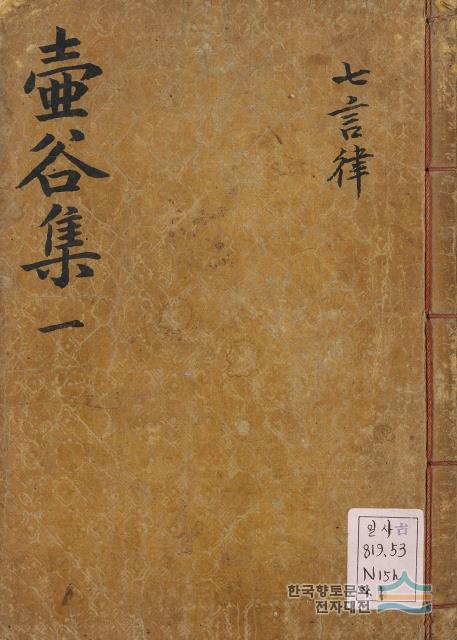 壺谷集 一
七言律
일사 古
819.53
N15h
v.1
한국향토문화
전자대전